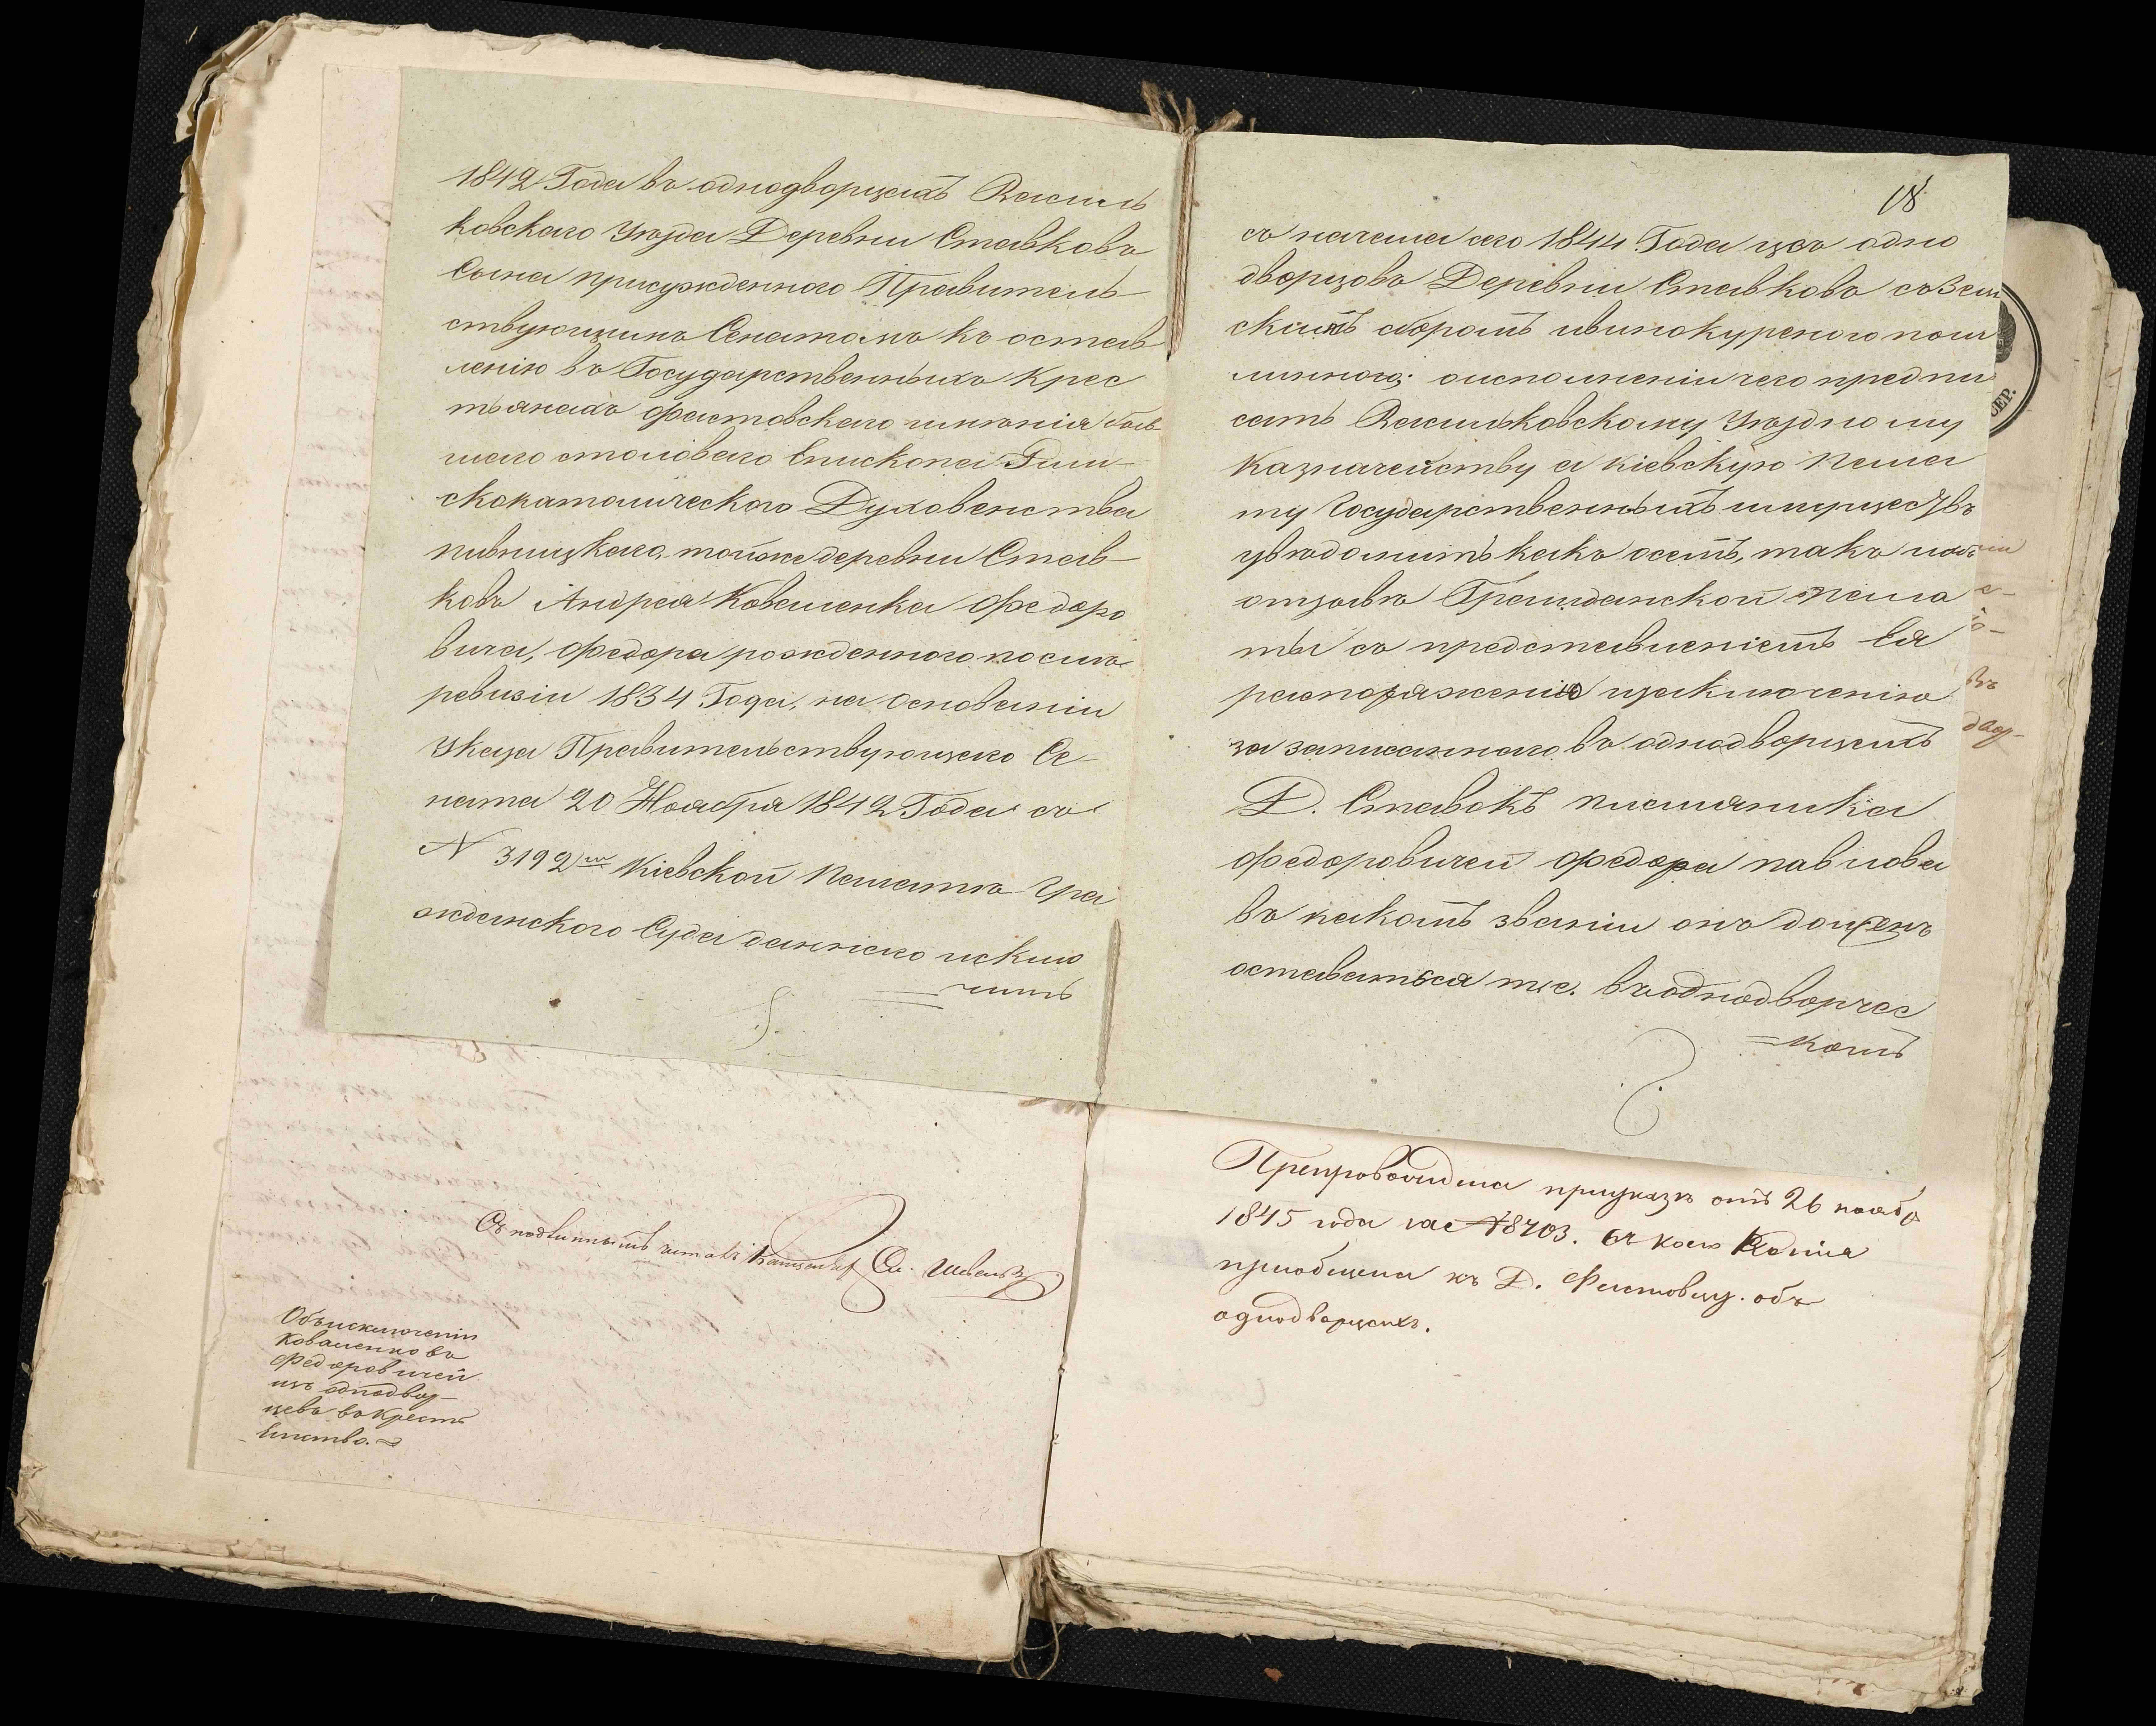 1842 Года въ однодворцахъ Василь
ковскаго уѣзда Деревни Ставковъ
Сына присужденного Правитель
ствующимъ Сенатомъ къ остав
ленію въ Государственныхъ Крес
тьянахъ Фастовского имѣнія быв
шаго столоваго Епископа Рим
скокатолического Духовенства
пивницкаго, тойже деревни Став
ковъ Андрея Коваленка Федоро
вича, Федора рожденного посилѣ
ревизіи 1834 Года, на основаніи
Указа Правительствующаго Се
ната 20 Ноября 1842 Года съ
N 3192мъ Кіевской Палатѣ Гра
жданского Суда даннаго исклю
чить
18
съ начала сего 1844 Года изъ одно
дворцовъ Деревни Ставковъ съ Зем
скимъ сборомъ ивинокуреного пош
линною; оисполненіи чего предпи
сать Васильковскому Уѣздному
Казначейству а Кіевскую Пала
ту Государственныхъ имуществъ
увѣдомить какъ осемъ, такъ
отзывѣ Гражданской Пала
ты съ представленіемъ Ея
распоряженію изаключенію
за записанного въ однодворцахъ
Д. Ставокъ писляника
Федоровичей Федора павлова
въ какомъ званіи онъ долженъ
оставаться т.е. въ однодворчес
комъ
Съ подлиннымъ читалъ
Объисключеніи
Коваленковъ
Федоровичей
изъ однодвор
цевъ въ Кресть
янство.
Препровождена приуказѣ отъ 26 нояб
1845 года за № 8703. съ коего Копія
приобщена къ Д. Фастовцу. объ
однодворцахъ.